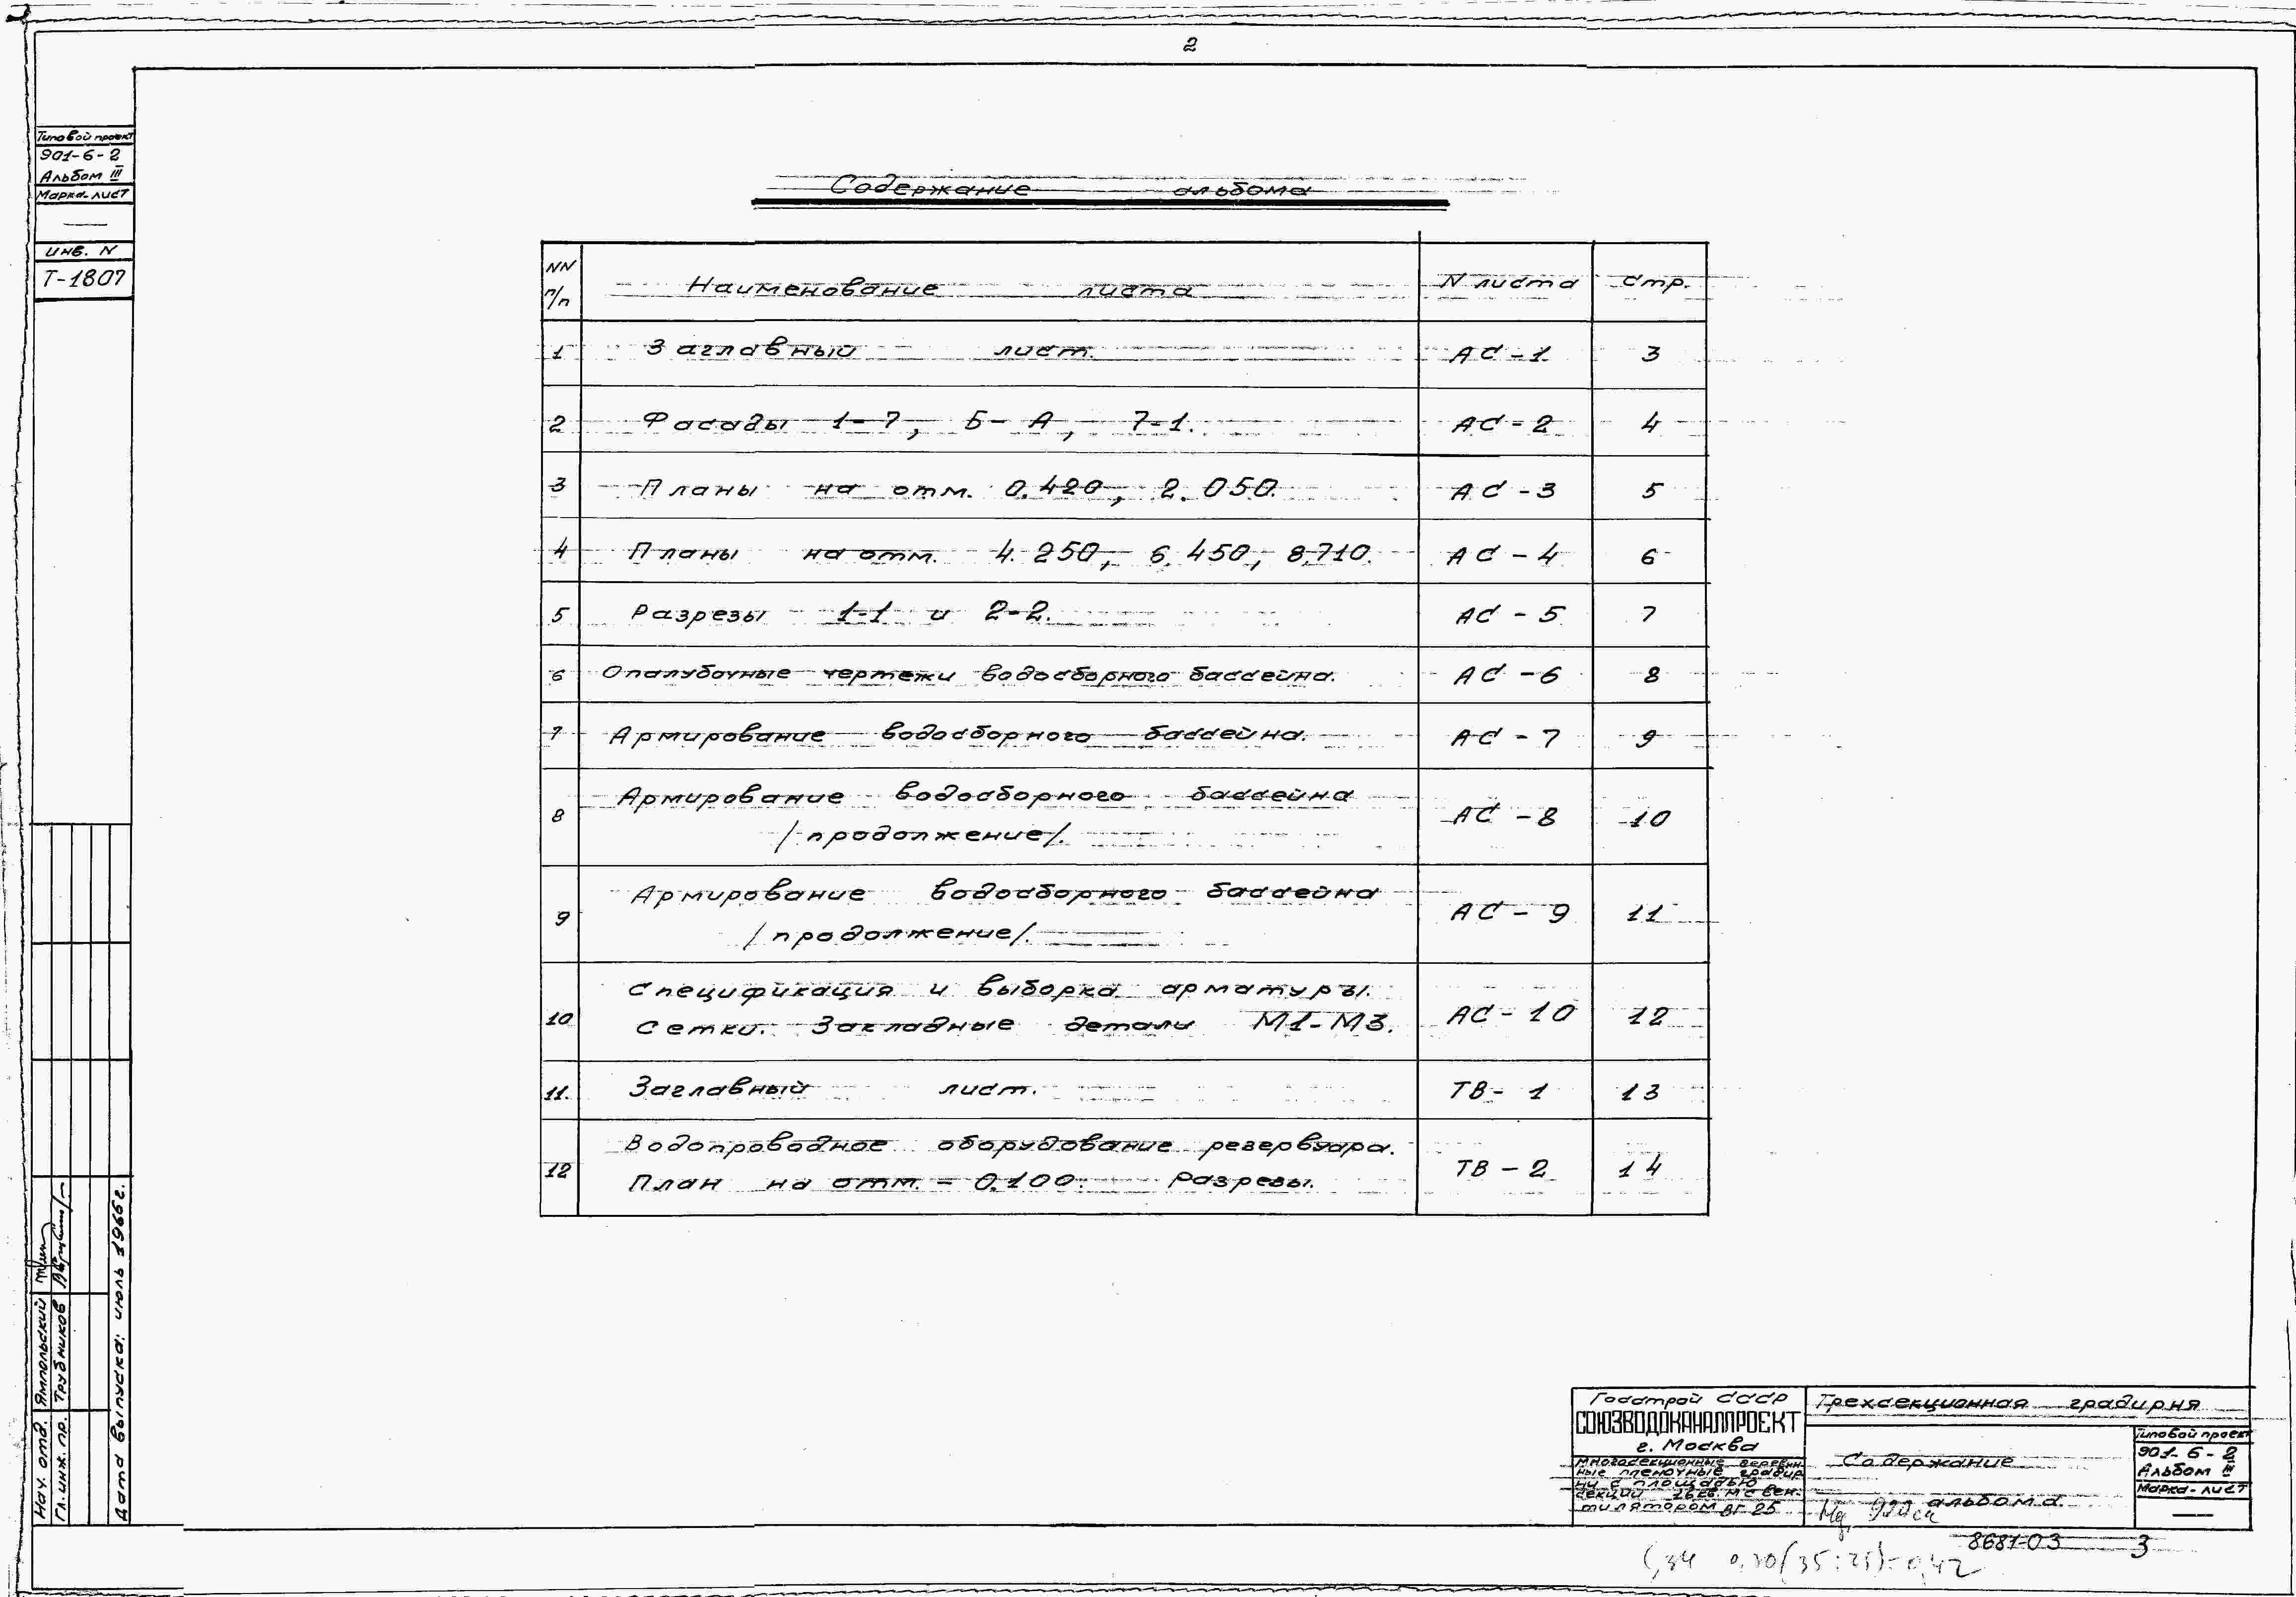 2
Типовой проект
901-6-2
Альбом III
Марка-лист
—
Инв. N
Т-1807
Содержание альбома
NN п/п Наименование листа N листа Стр.
1 Заглавный лист. АС-1 3
2 Фасады 1-7, Б-А, 7-1. АС-2 4
3 Планы на отм. 0.420, 2.050. АС-3 5
4 Планы на отм. 4.250, 6.450, 8.710. АС-4 6
5 Разрезы 1-1 и 2-2. АС-5 7
6 Опалубочные чертежи водосборного бассейна. АС-6 8
7 Армирование водосборного бассейна. АС-7 9
8 Армирование водосборного бассейна АС-8 10
/продолжение/.
9 Армирование водосборного бассейна АС-9 11
/продолжение/.
10 Спецификация и выборка арматуры. АС-10 12
Сетки. Закладные детали М1-М3.
11. Заглавный лист. ТВ-1 13
12 Водопроводное оборудование резервуара. ТВ-2 14
План на отм. - 0.100. Разрезы.
Нач. отд. Ямпольский
Гл. инж. пр. Трубников
Дата выпуска: июль 1966г.
Госстрой СССР
СОЮЗВОДОКАНАЛПРОЕКТ
г. Москва
Многосекционные деревян-
ные пленочные градир
ни с площадью
секции 16 кв. м с вен-
тилятором ВГ 25
Трехсекционная градирня
Содержание
альбома.
Типовой проект
901-6-2
Альбом III
Марка-лист
—
8681-03 3